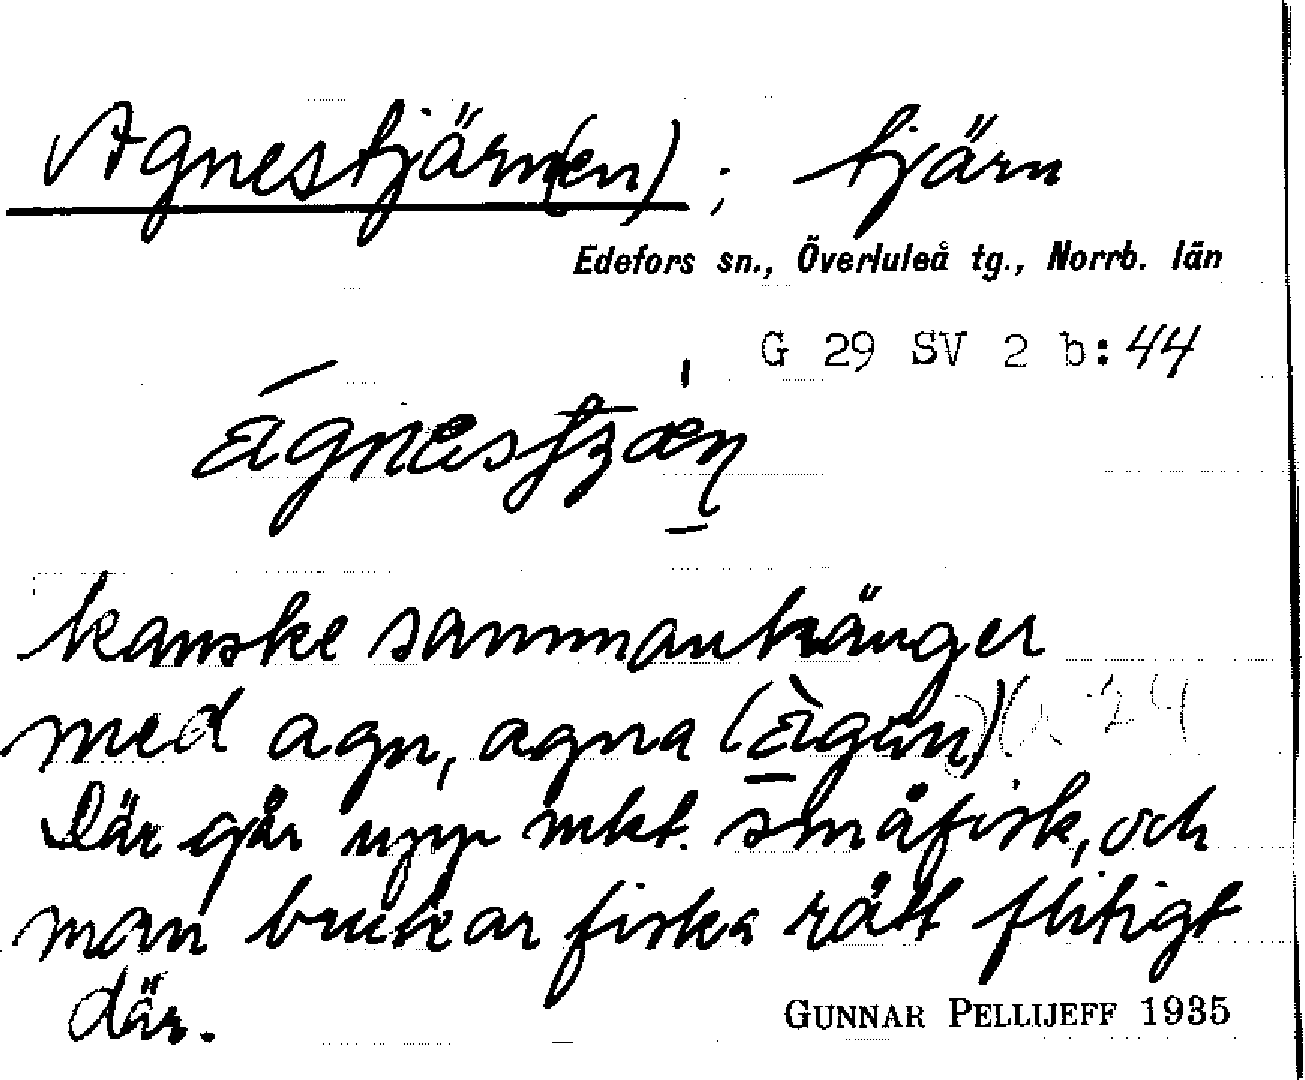 Agnestjärn(en) ; tjärn
Edefors sn., Överluleå tg., Norrb. län
G 29 SV 2 b: 44
kanske sammanhänger
med agn, agna
Där går upp mkt. småfisk, och
man brukar fiska rätt flitigt
där.
GUNNAR PELLIJEFF 1935